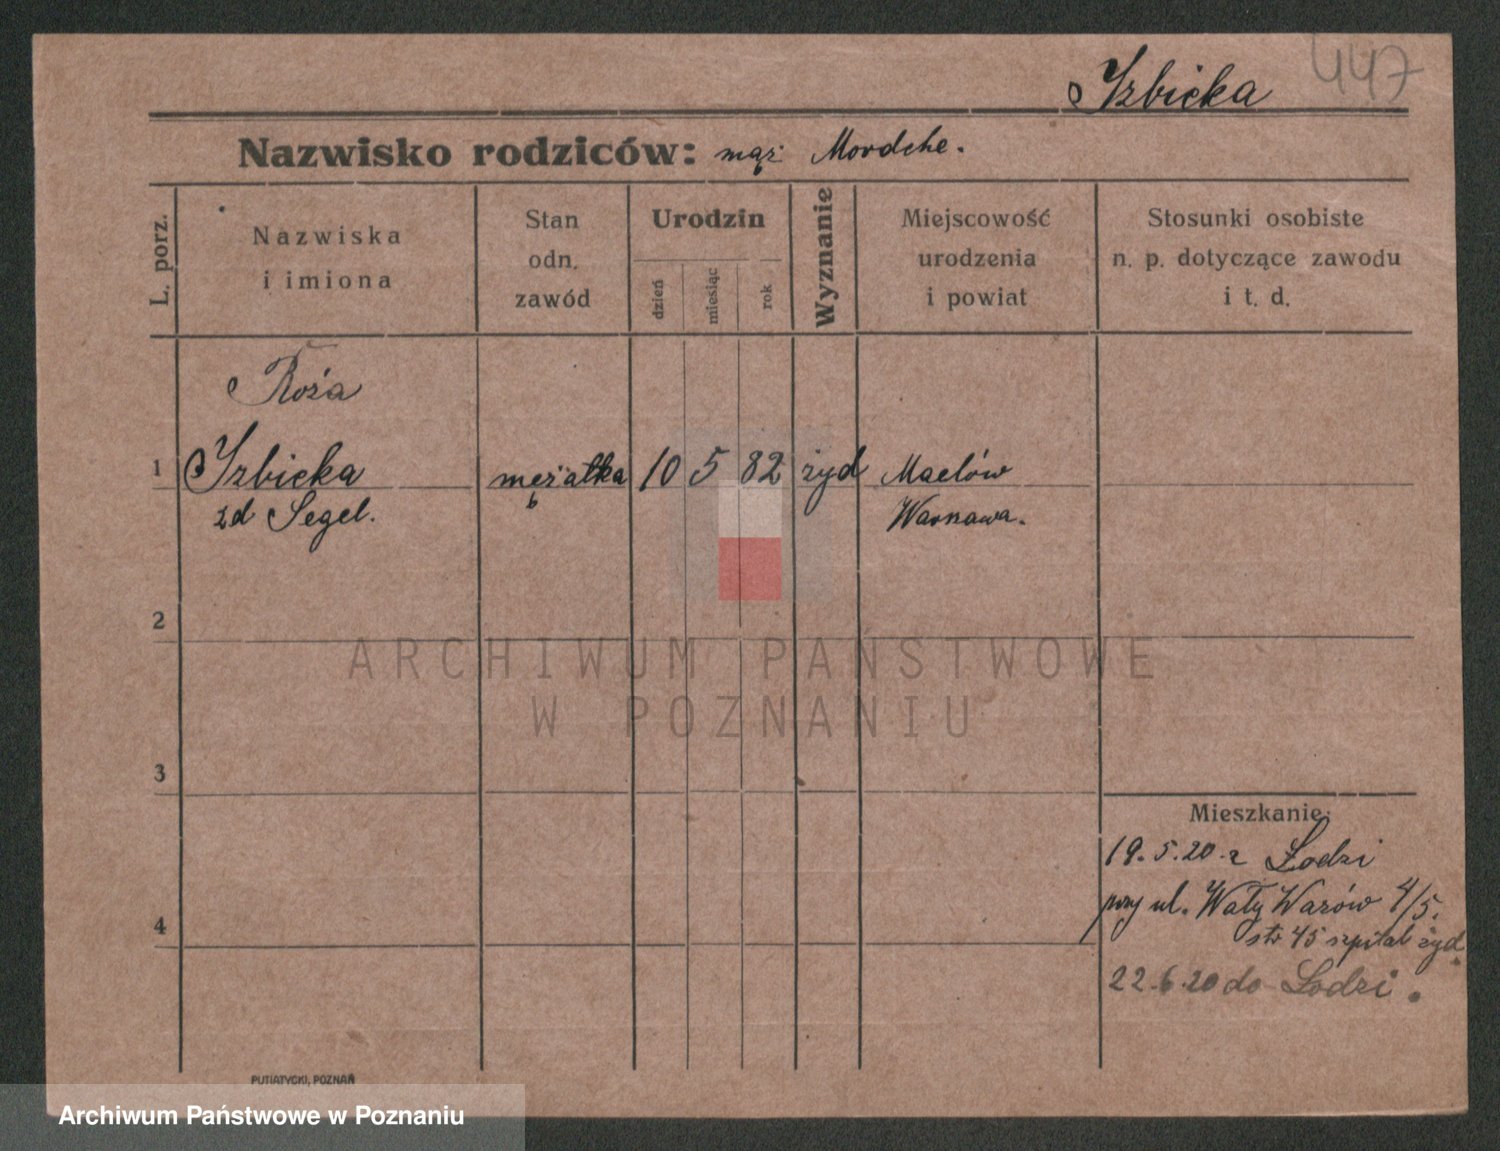 447
Izbicka
Nazwisko rodziców: mąż Mordche.
L. porz.
Nazwiska
i imiona
Stan
odn.
zawód
Urodzin
dzień
miesiąc
rok
Wyznanie
Miejscowość
urodzenia
i powiat
Stosunki osobiste
n. p. dotyczące zawodu
i t. d.
Róża
1 Izbicka mężatka 10 5 82 żyd
zd Segel.
2
3
4
Mieszkanie:
19.5.20 z Łodzi
przy ul. Wały Wazów 4/5.
str 45 szpital żyd.
22.6.20 do Łodzi.
PUTIATYCKI, POZNAŃ
ARCHIWUM PAŃSTWOWE
W POZNANIU
Archiwum Państwowe w Poznaniu